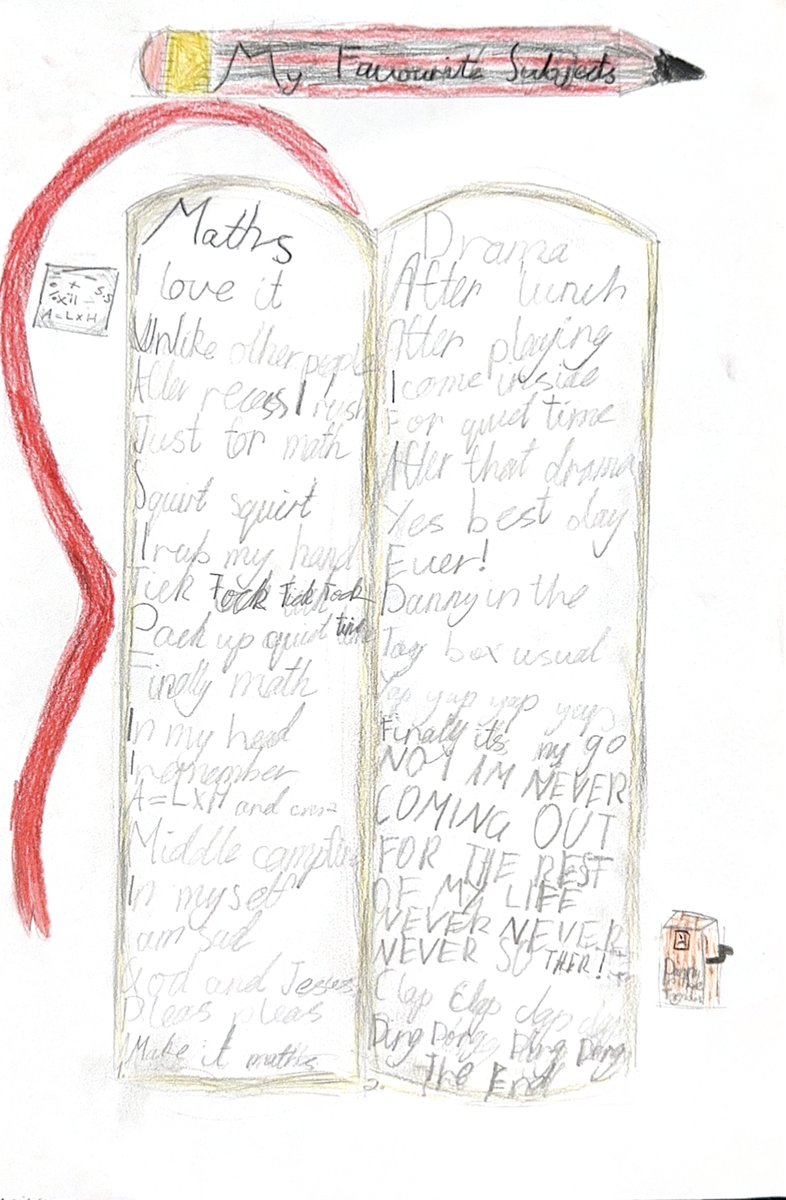 My Favourite Subjects
Maths
I love it
Unlike other people
After recess I rush
Just for math
Squirt squirt
I rub my hand
Tick Tock Tick Tock
Pack up quiet time
Finally math
In my head
I remember
A=LxH and
Middle
In myself
I am sad
God and Jesus
Pleas pleas
Make it maths
1.
+
x11
5.5
A=LxH
Drama
After lunch
After playing
I come inside
For quiet time
After that drama
Yes best day
Ever!
Danny in the
Toy box usual
Yap yap yap yap
Finally its my go
NO I AM NEVER
COMING OUT
FOR THE REST
OF MY LIFE
NEVER NEVER
NEVER SO THER!
Clap Clap clap clap
Ding Dong Ding Dong
The End
2.